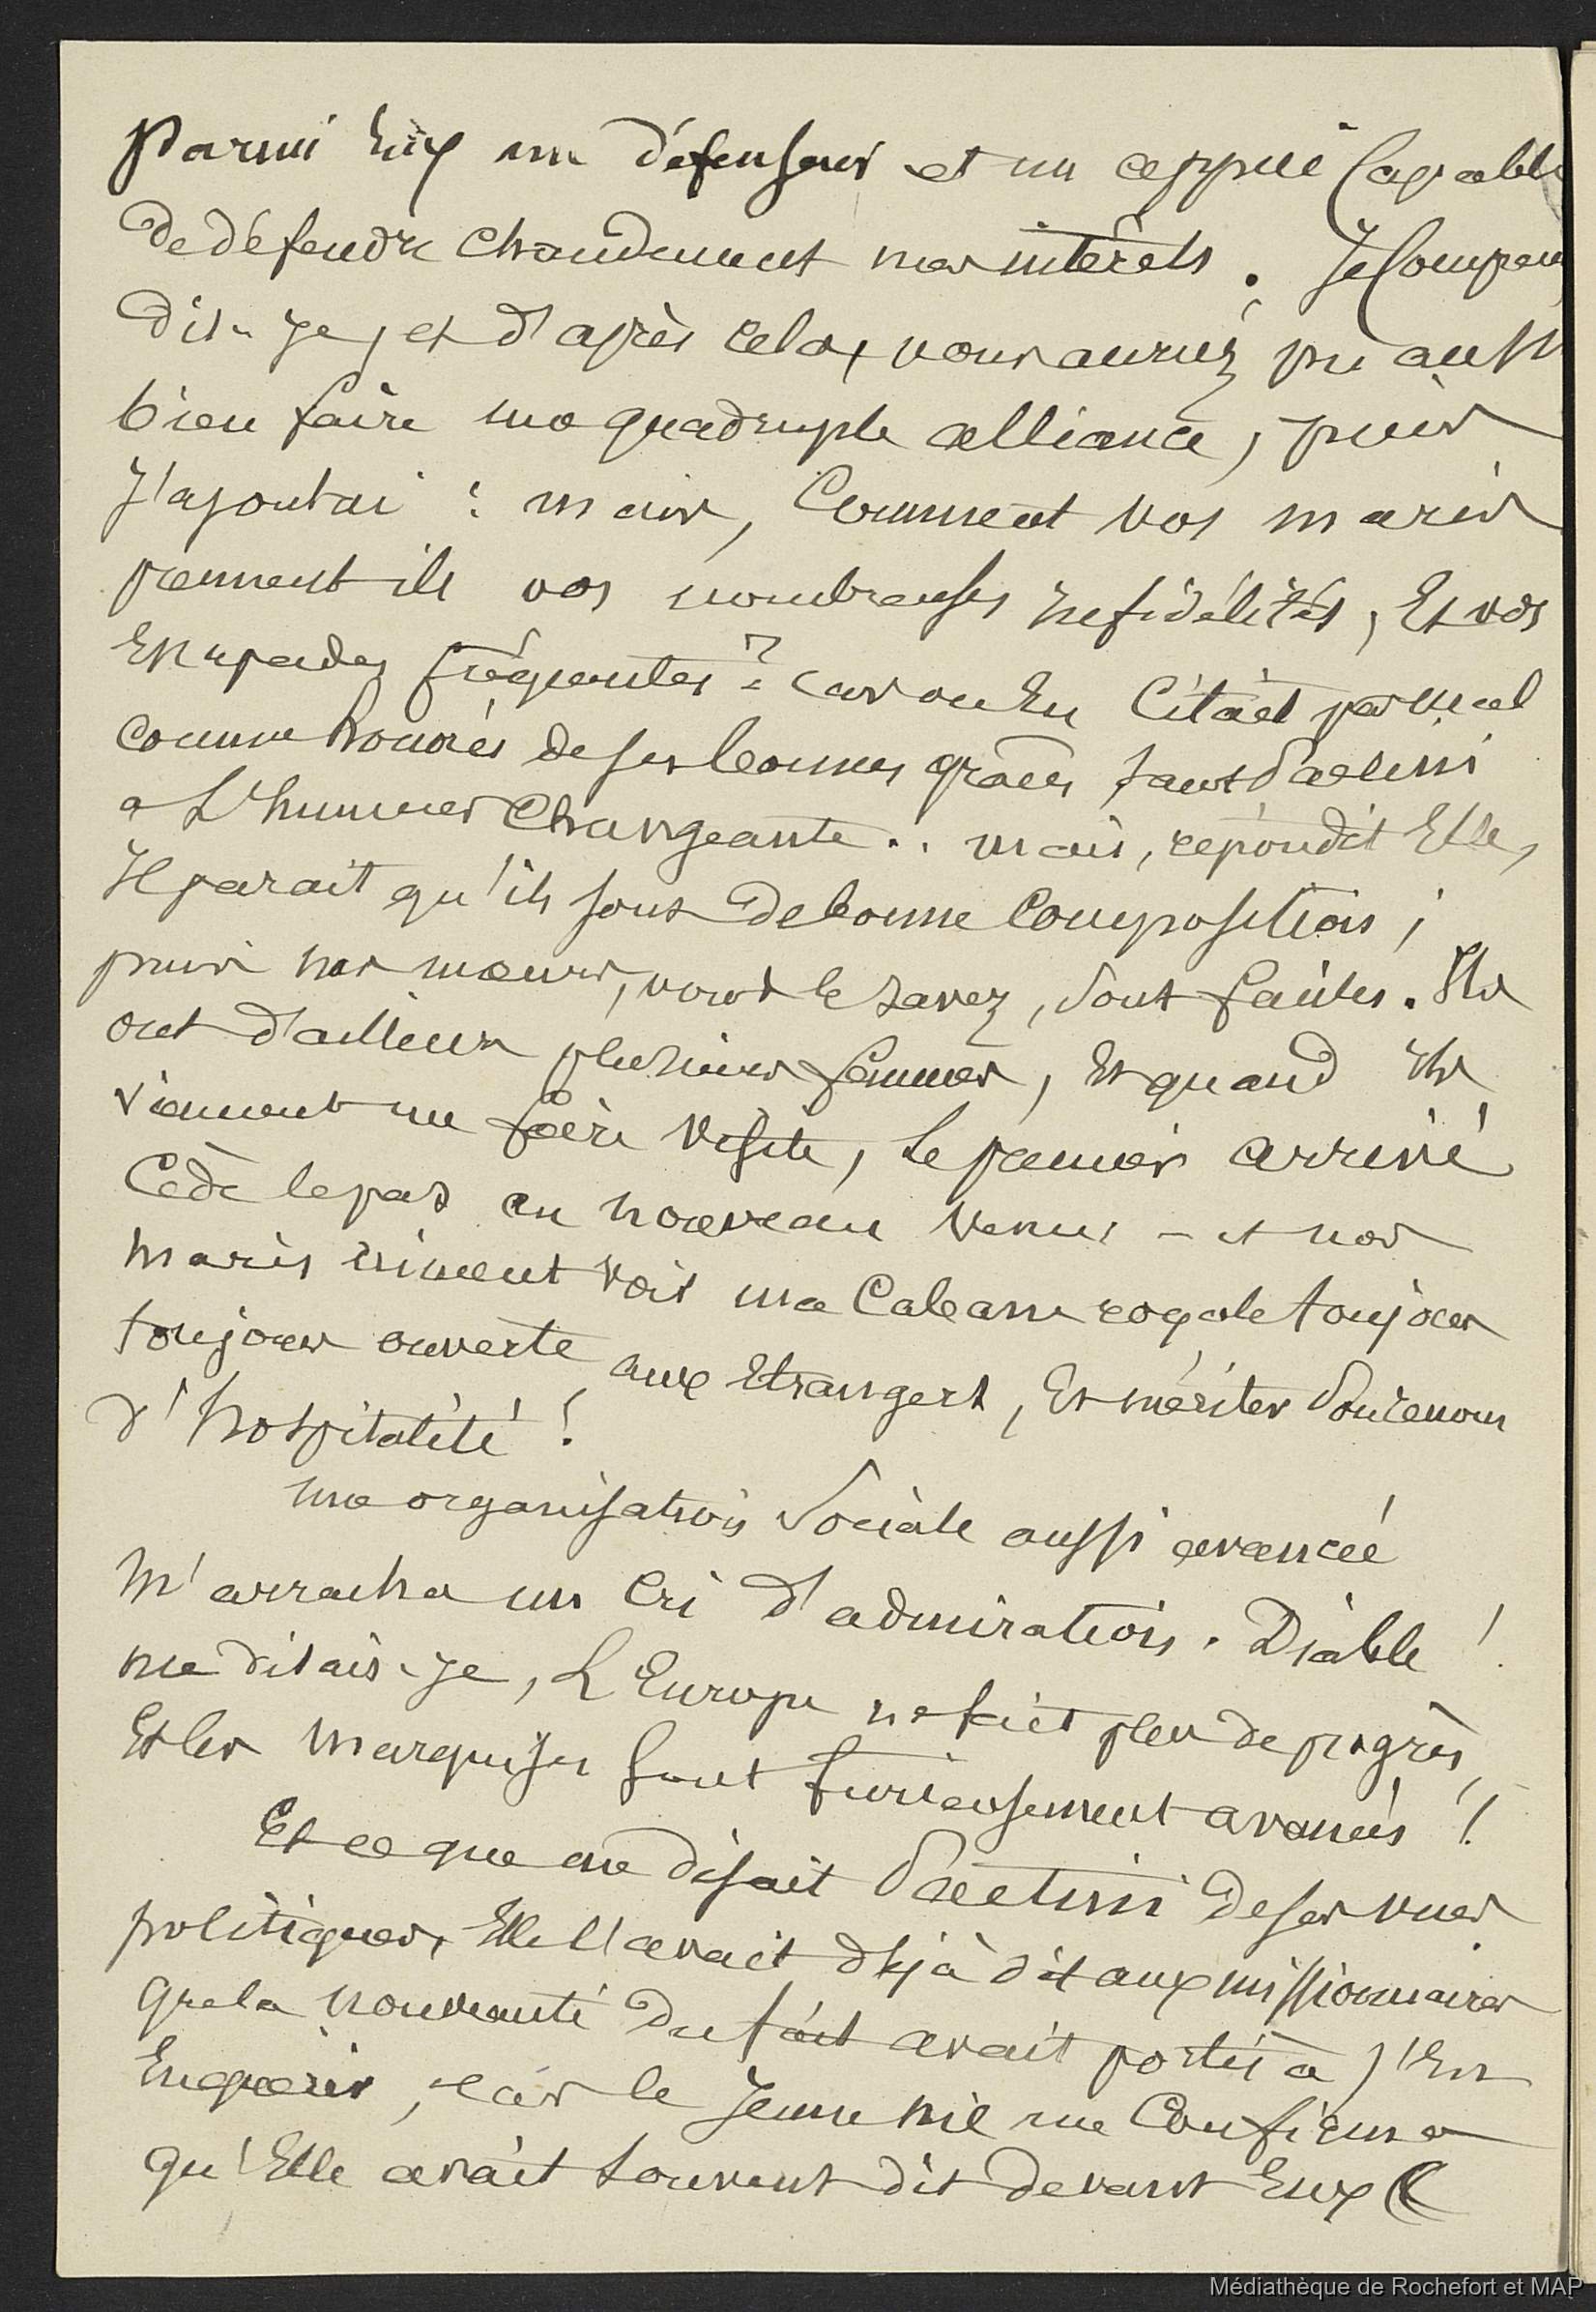 Parmi Eux un défenseur et un appui Capable
de défendre Chaudement nos intérêts. Je Compren
dis-Je, et d'après cela, vous auriez pu aussi
bien faire une quadruple alliance, puis
J'ajoutai : mais, Comment vos maris
prennent-ils vos nombreuses infidélités, Et vos
Escapades fréquentes? car on En Citait pas mal
comme honorés de ses bonnes grâces
a L'humeur Changeante.. mais, répondit Elle,
Il parait qu'ils sont de bonne Composition;
puis nos moeurs, vous le savez, sont faciles. Ils
ont d'ailleurs plusieurs femmes, Et quand Ils
viennent me faire visite, Le premier arrivé
Cède le pas au nouveau Venu - et nos
maris aiment voir ma Cabane royale toujours
toujours ouverte aux Etrangers, Et mériter son renom
d'hospitalité!
une organisation Sociale aussi avancée
M'arracha un Cri d'admiration. Diable!
me disais-je, L'Europe ne fait plus de progrès,
Et les Marquises sont furieusement avancés!
Et ce que me disait Vaetini de ses vues
politiques, Elle l'avait déjà dit aux missionnaires
que la nouveauté du fait avait portés à s'En
Enquérir, car le Jeune me Confirma
qu'Elle avait souvent dit devant Eux
Médiathèque de Rochefort et MAP